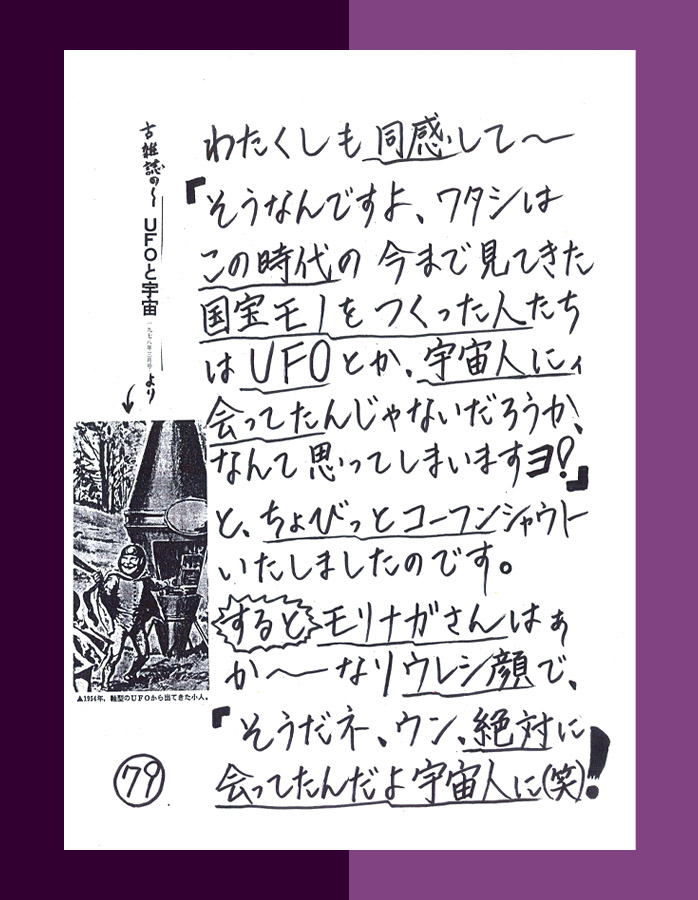 わたくしも同感して〜
「そうなんですよ、ワタシは
この時代の今まで見てきた
国宝モノをつくった人たち
はUFOとか、宇宙人にィ
会ってたんじゃないだろうか、
なんて思ってしまいますヨ!」
と、ちょびっとコーフンシャウト
いたしましたのです。
するとモリナガさんはぁ
か〜〜なりウレシ顔で、
「そうだネ、ウン、絶対に
会ってたんだよ宇宙人に(笑)!
古雑誌の〜
UFOと宇宙
一九七八年三月号
より
▲1954年、軸型のUFOから出てきた小人。
79